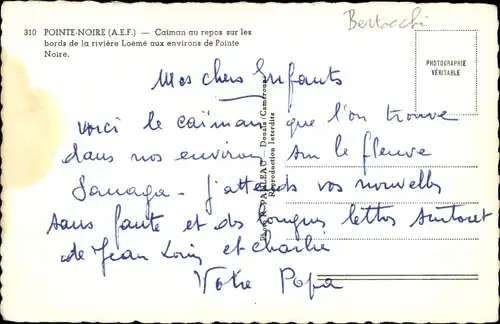 310 POINTE-NOIRE (A.E.F.) — Caïman au repos sur les
bords de la rivière Loémé aux environs de Pointe
Noire.
Bertocchi
PHOTOGRAPHIE
VÉRITABLE
Mes chers Enfants
Voici le caïman que l'on trouve
dans nos environs sur le fleuve
Sanaga - j'attends vos nouvelles
sans faute et des longues lettres surtout
de Jean Louis et Charlie
Votre Papa
PAILLEAU — Douala (Cameroun)
Reproduction Interdite